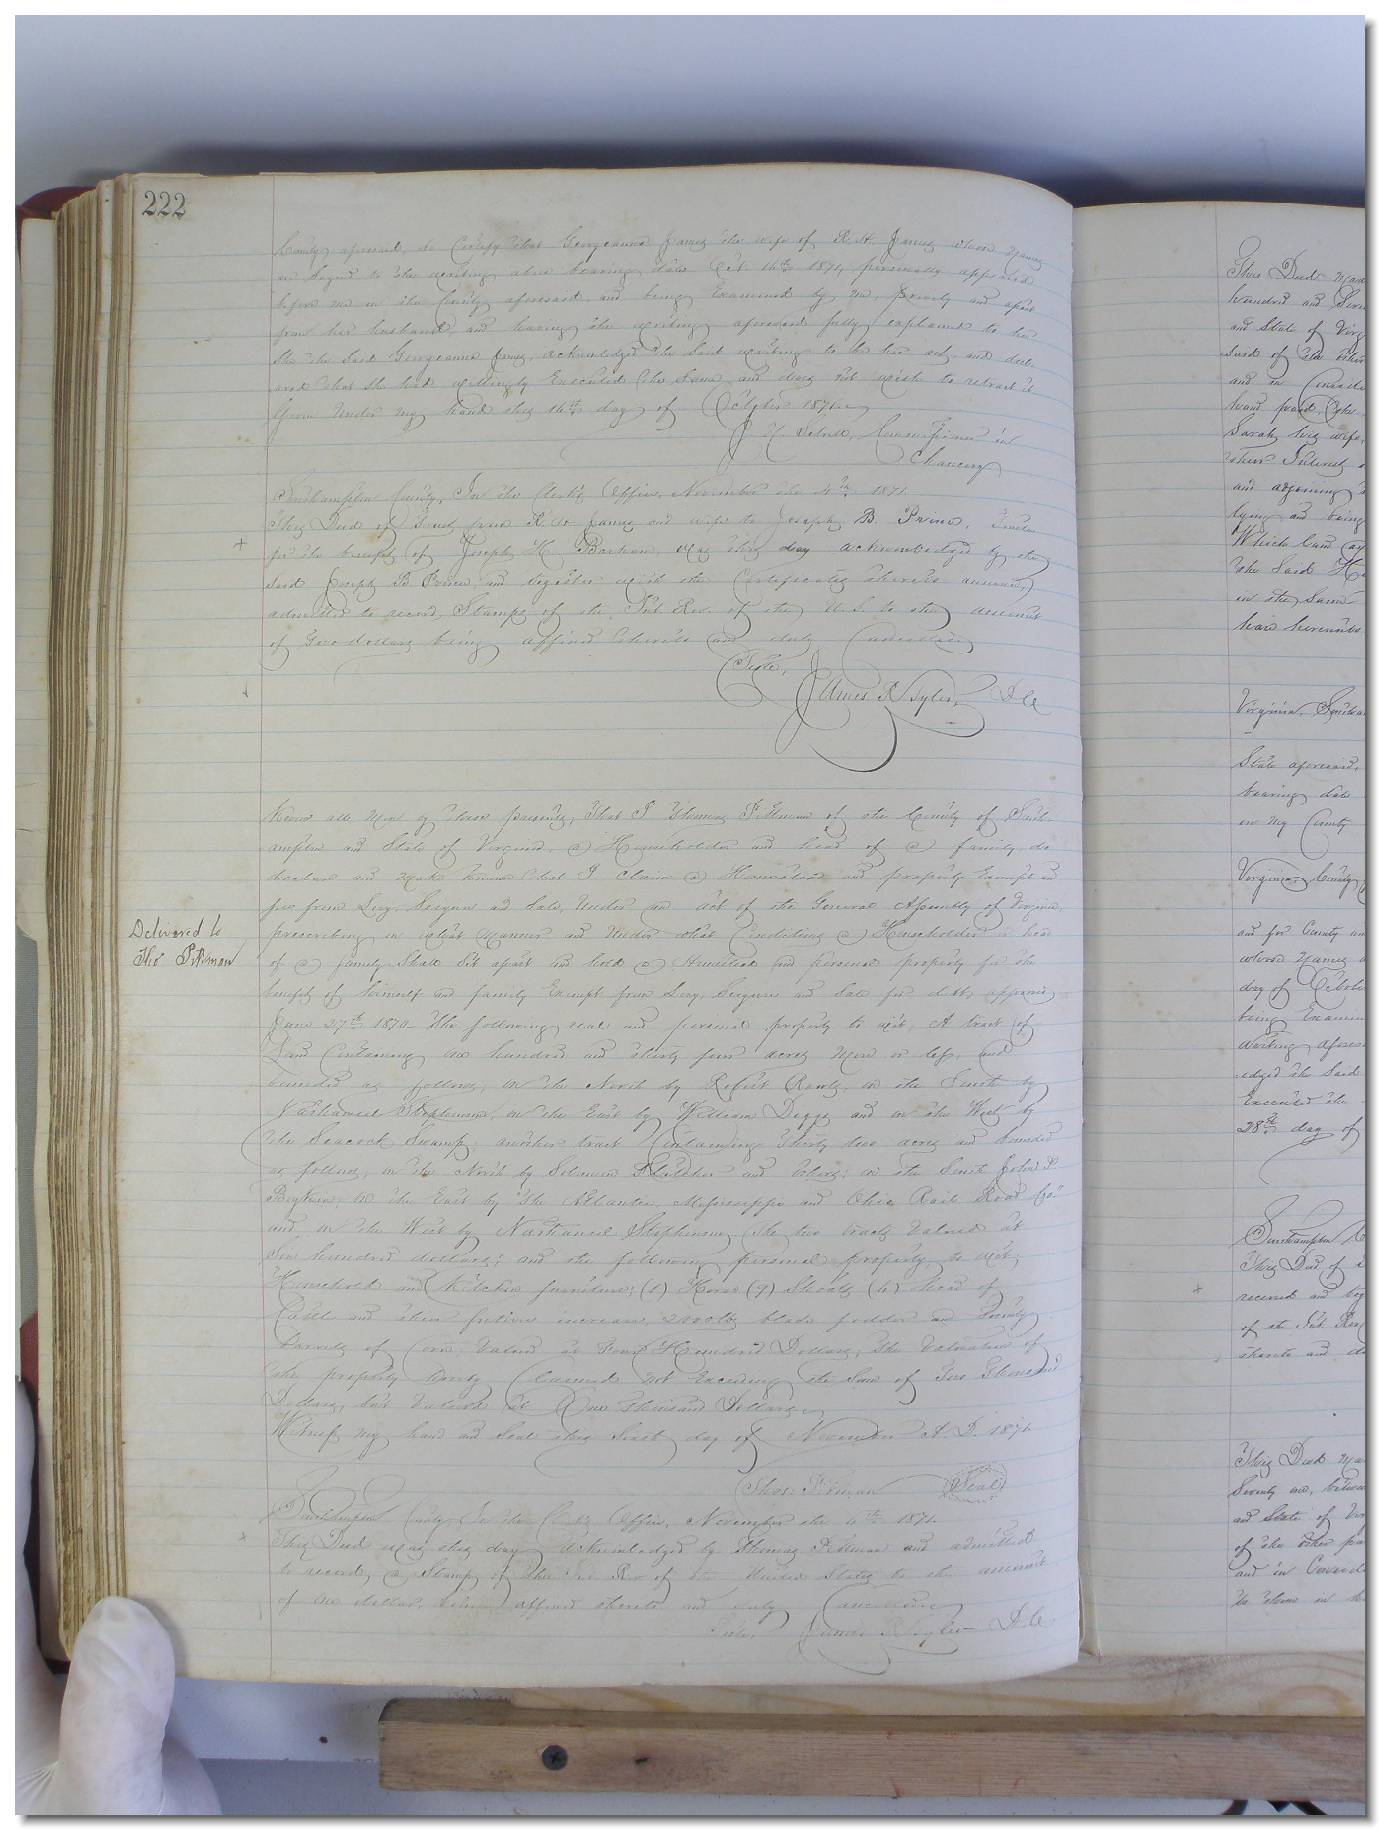 222
County aforesaid, do Certify that Georgeanna James the wife of R. H. James whose names
are signed to the writing above bearing date Oct. 16th 1871, personally appeared
before me in the County aforesaid, and being Examined by me, privily and apart
from her husband, and having the writing aforesaid fully explained to her
she the said Georgeanna James, acknowledged the said writing to be her act, and deed
and that she had willingly Executed the same, and does not wish to retract it
Given Under my hand this 16th day of October 1871
Commissioner in
Chancery
Southampton County, In the Clerk's Office, November the 4th 1871
This Deed of Trust from R. H. James and wife to Joseph B. Prince, Trustee
for the benefit of Joseph H. Barham, was this day acknowledged by the
said Joseph B Prince, and together with the Certificates thereto annexed,
admitted to record, Stamps of the Int. Rev. of the U. S. to the amount
of Two dollars being affixed thereto and duly Cancelled
Teste,
James R Tyler, D.C.
Know all Men by these presents, That I Thomas Pittman of the County of South-
ampton and State of Virginia, a Householder and head of a family, do
declare and make known that I claim a Homestead and property Exempt and
free from Levy, Seizure and Sale, Under an act of the General Assembly of Virginia,
prescribing in what manner and Under what Conditions a Householder or head
of a family Shall Set apart and hold a Homestead and personal property for the
benefit of himself and family Exempt from Levy, Seizure and Sale for debts, approved
June 27th 1870 - The following real and personal property to wit, A tract of
Land Containing One hundred and thirty four acres More or less, and
bounded as follows, on the North by Rawls, on the South by
Nathaniel Stephenson, on the East by William Diggs, and on the West by
the Seacock Swamp, another tract Containing Thirty two acres and bounded
as follows, on the North by Solomon Fletcher and others; on the South John P
on the East by "The Atlantic, Mississippi and Ohio Rail Road Co"
and on the West by Nathaniel Stephenson, The two tracts Valued at
Six hundred dollars; and the following personal property, to wit,
Household and Kitchen furniture; (1) Horse (9) Shoats (4) head of
Cattle and their future increase, 2000lbs blade fodder and Twenty
Barrels of Corn, Valued at Four Hundred Dollars, The Valuation of
the property hereby Claimed not Exceeding the Sum of Two Thousand
Dollars, but Valued at One Thousand Dollars
Witness my hand and Seal this first day of November A. D. 1871
Thos. Pittman Seal
Southampton County, In the Clerk's Office, November the 4th 1871
This Deed was this day acknowledged by Thomas Pittman and admitted
to record, a Stamp of the Int Rev of the United States to the amount
of One dollar, being affixed thereto and duly Cancelled
Teste, James R Tyler D.C.
Delivered to
Thos Pittman
This Deed made
hundred and Seve
and State of Virg
and of the other
and in Conside
hand paid, the
Sarah his wife,
their Interest
and adjoining
lying and being
Which land
the Said
in the Same
have hereunto
Virginia, Southa
State aforesaid,
bearing date
in my County
Virginia, County
and for County an
whose names
day of October
being Examin
writing afores
edged the Said
Executed the
28th day of
Southampton
This Deed of
received and tog
of the Int Rev
thereto and du
This Deed ma
Seventy one, betwe
and State of Vir
of the other par
and in Conside